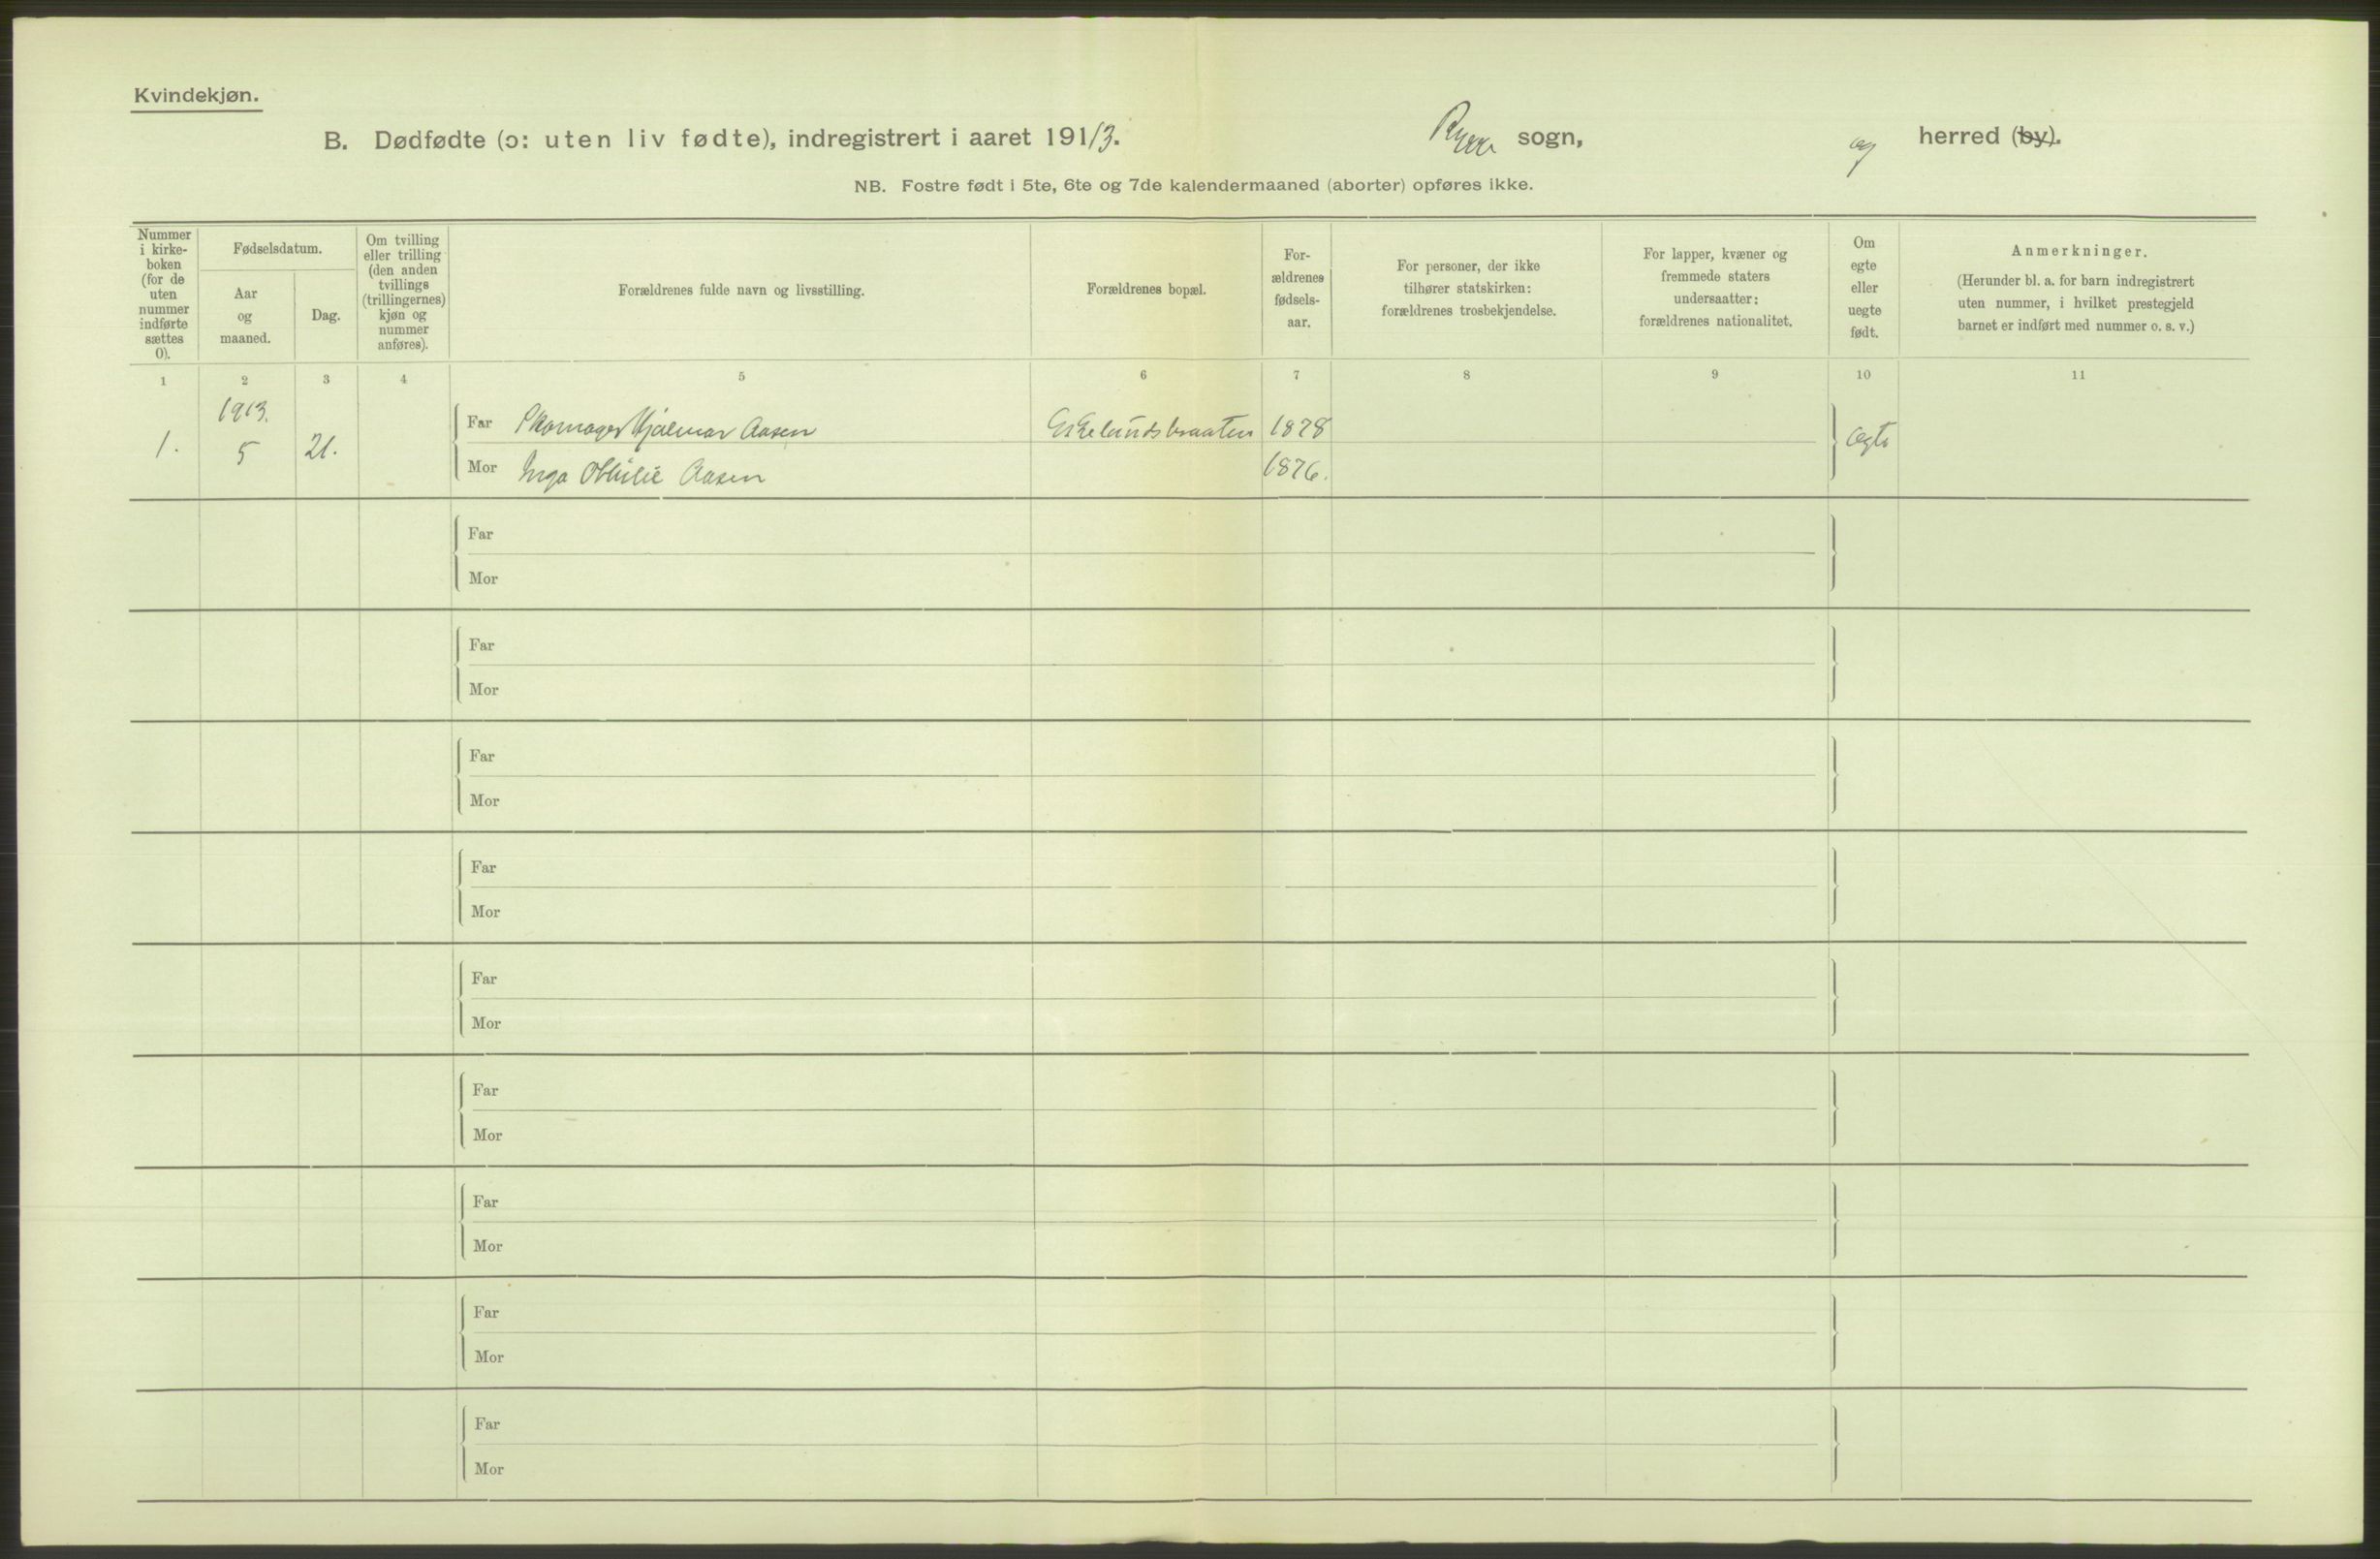 Kvindekjøn.
B. Dødfødte (ɔ: uten liv fødte), indregistrert i aaret 1913. Rygge sogn, og herred (by).
NB. Fostre født i 5te, 6te og 7de kalendermaaned (aborter) opføres ikke.
Nummer
i kirke-
boken
(for de
uten
nummer
indførte
sættes
0).
Fødselsdatum.
Aar
og
maaned.
Dag.
Om tvilling
eller trilling
(den anden
tvillings
(trillingernes)
kjøn og
nummer
anføres).
Forældrenes fulde navn og livsstilling.
Forældrenes bopæl.
For-
ældrenes
fødsels-
aar.
For personer, der ikke
tilhører statskirken:
forældrenes trosbekjendelse.
For lapper, kvæner og
fremmede staters
undersaatter:
forældrenes nationalitet.
Om
egte
eller
uegte
født.
Anmerkninger.
(Herunder bl. a. for barn indregistrert
uten nummer, i hvilket prestegjeld
barnet er indført med nummer o. s. v.)
1 2 3 4 5 6 7 8 9 10 11
1913.
1. 5 21.
Far Skomager Hjalmar Aasen Eskelundsbraaten 1878 egte
Mor Inga Othilie Aasen 1876.
Far
Mor
Far
Mor
Far
Mor
Far
Mor
Far
Mor
Far
Mor
Far
Mor
Far
Mor
Far
Mor